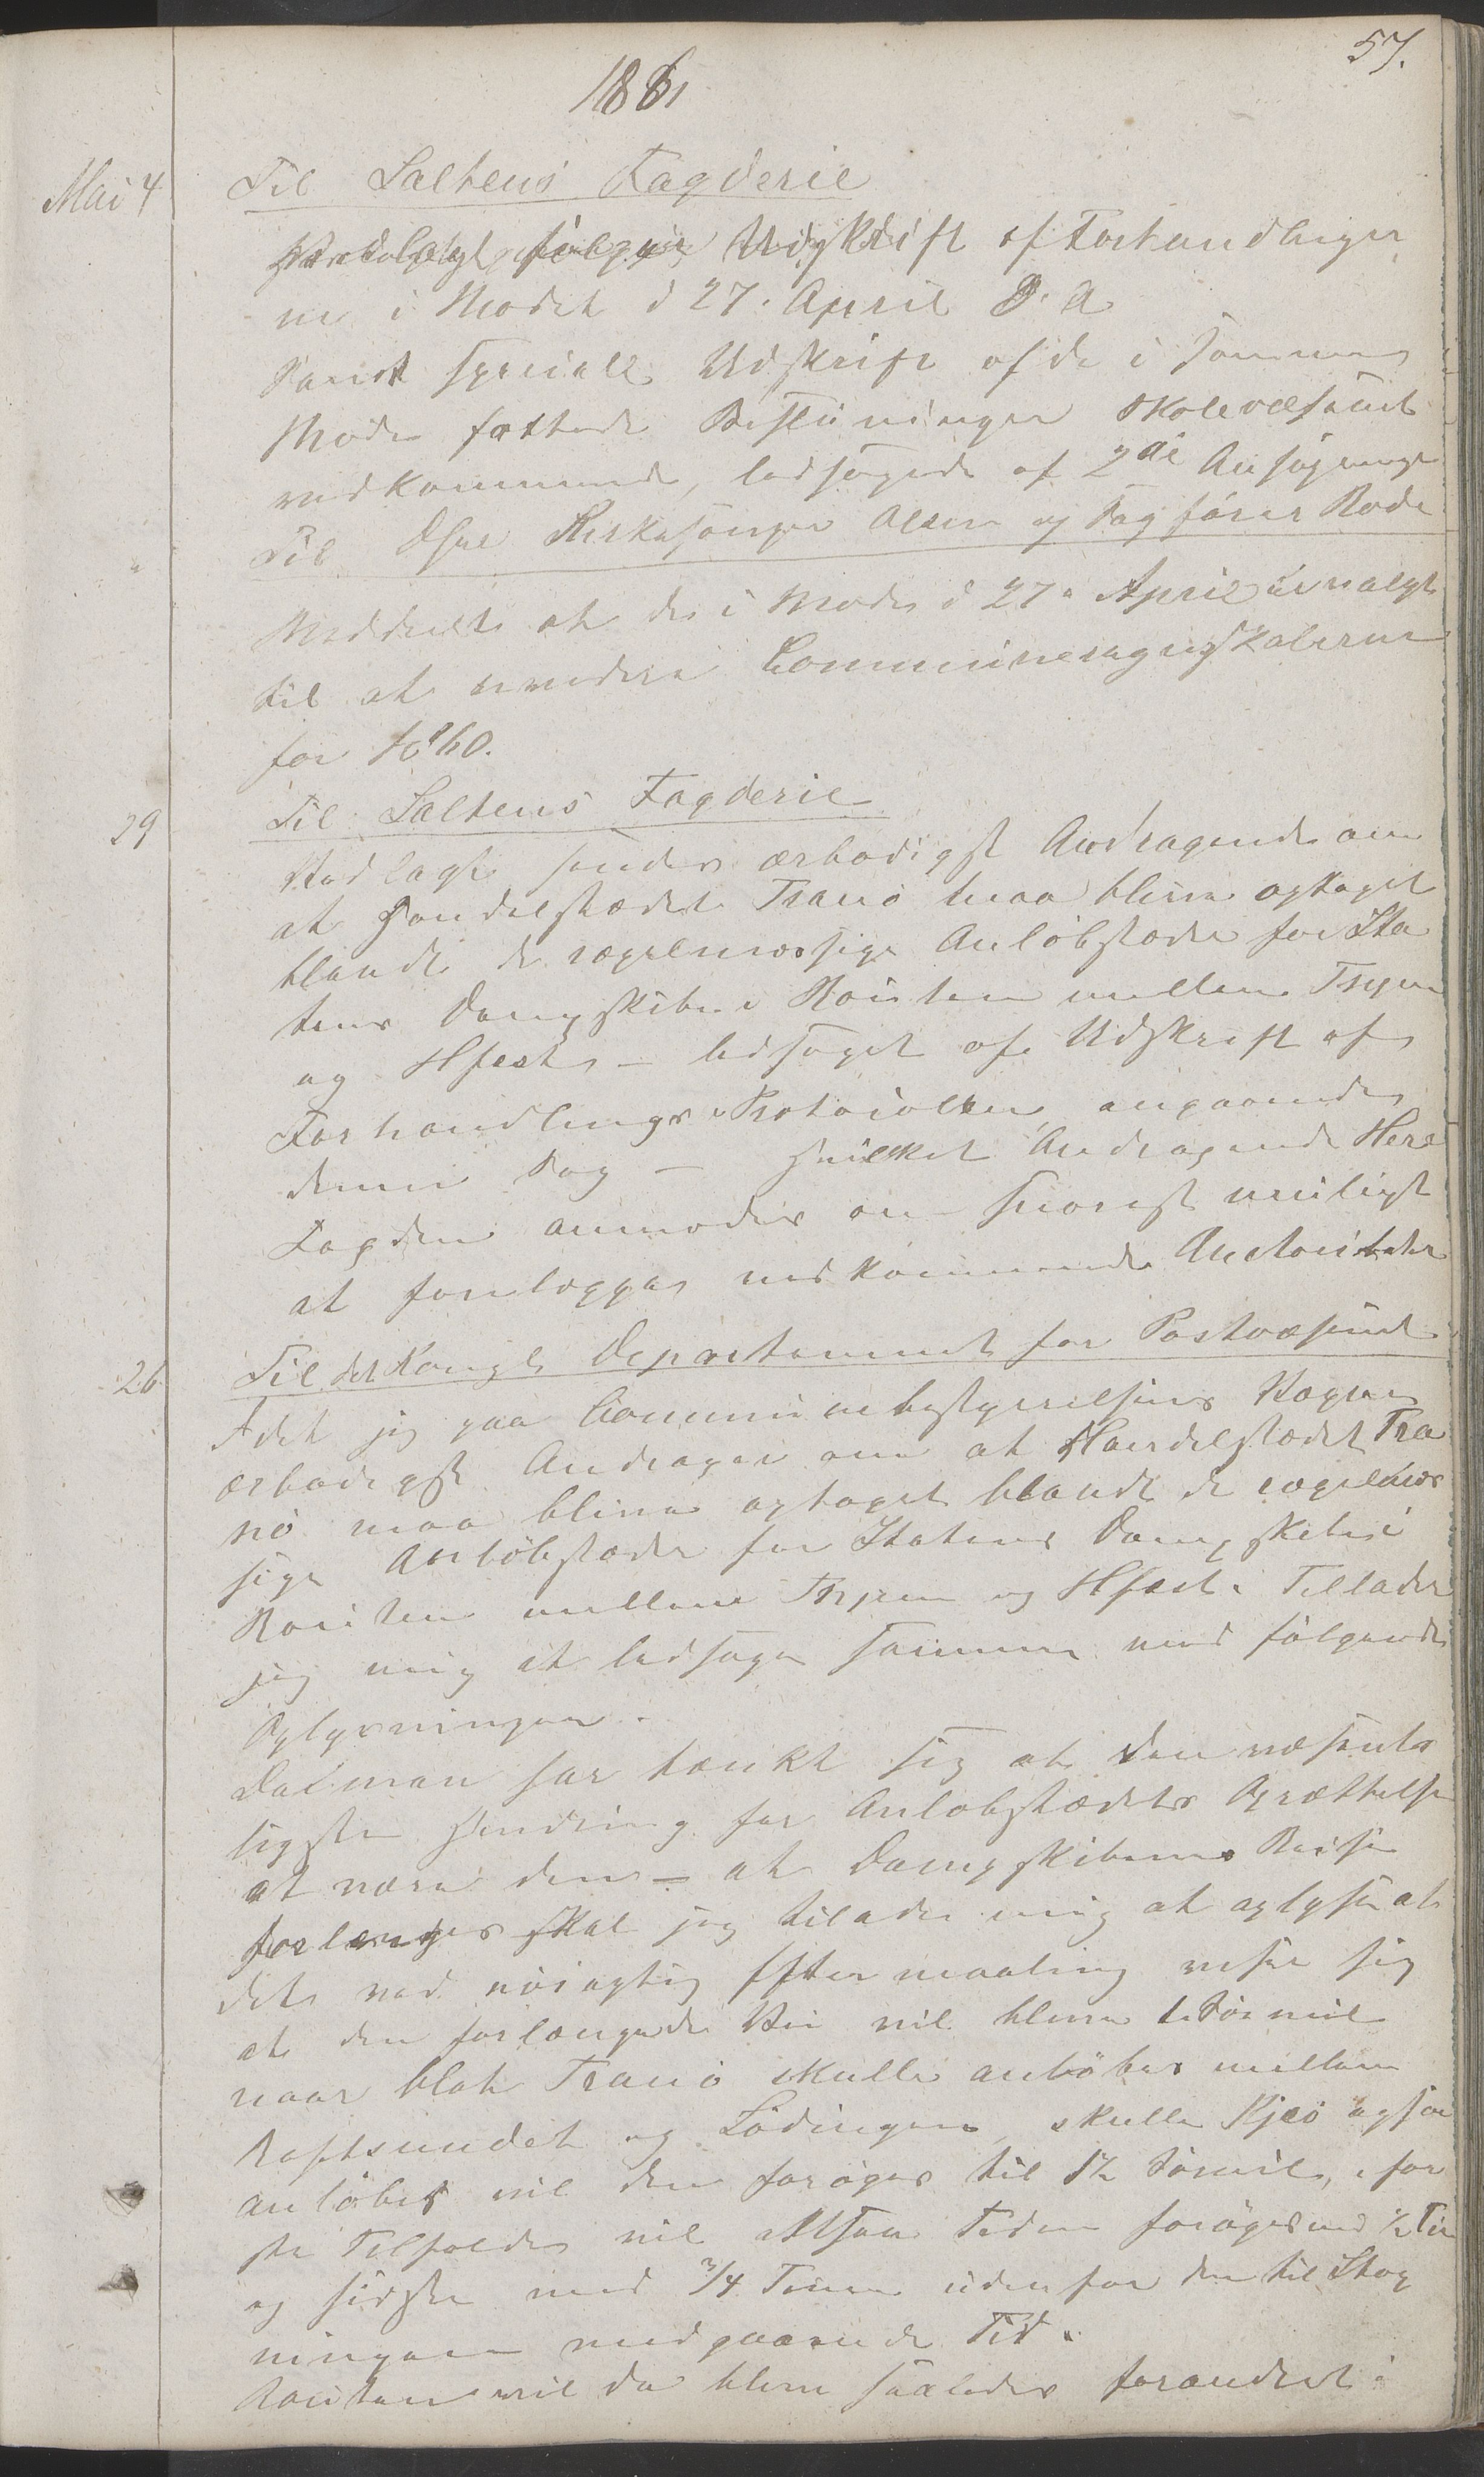 57.
1861
Mai 4
Til Saltens Fogderie
Vedlagt følger Udskrift af Forhandlinger
ne i Mødet d 27. April d. A
samt speciell Udskrift af de i samme
Møde fattede Beslutninger Skolevæsenet
vedkommende, ledsaget af 2de Ansøgninger
Til Dhrr Kirkesanger Olsen og Sagfører Bode
Meddeelt at de i Mødet d 27. April er valgt
til at revidere Communeregnskaberne
for 1860.
29
Til Saltens Fogderie
Vedlagt sendes ærbødigst Andragende om
at Handelstedet Tranø maa blive optaget
blandt de regelmæssige Anløbsteder for Sta
tens Dampskibe i Routen mellem Thjem
og Hfest – ledsaget af Udskrift af
Forhandlings Protocollen angaaende
denne Sag – hvilket Andragende Herr
Fogden anmodes om snarest muligt
at forelægges vedkommende Auctoriteter
26
Til det Kongl Departement for Postvæsenet
Idet jeg paa Communebestyrelsens Vegne
ærbødigst Andrager om at Handelstedet Tra
nø maa blive optaget blandt de regelmæs
sige Anløbsteder for Statens Dampskibe i
Routen mellem Thjem og Hfest. Tillader
jeg mig at ledsage samme med følgende
Oplysninger.
Da man har tænkt sig at den væsent
ligste Hindring for Anløbstedets Oprættelse
at være den – at Dampskibenes Reise
forlænges skal jeg tilade mig at oplyse at
det ved nøiagtig Eftermaaling viser sig
at den forlængede Vei vil blive 1 Sømiil
naar blot Tranø skulle anløbes mellem
Raftsundet og Lødingen, skulle Kjeø ogsaa
anløbes vil den forøges til 1½ Sømiil, i før
ste Tilfælde vil altsaa Tiden forøges med ½ Tim
og sidste med 3/4 Time uden for den til Stop
ningen medgaaende Tid.
Routen vil da blive saaledes forandret: